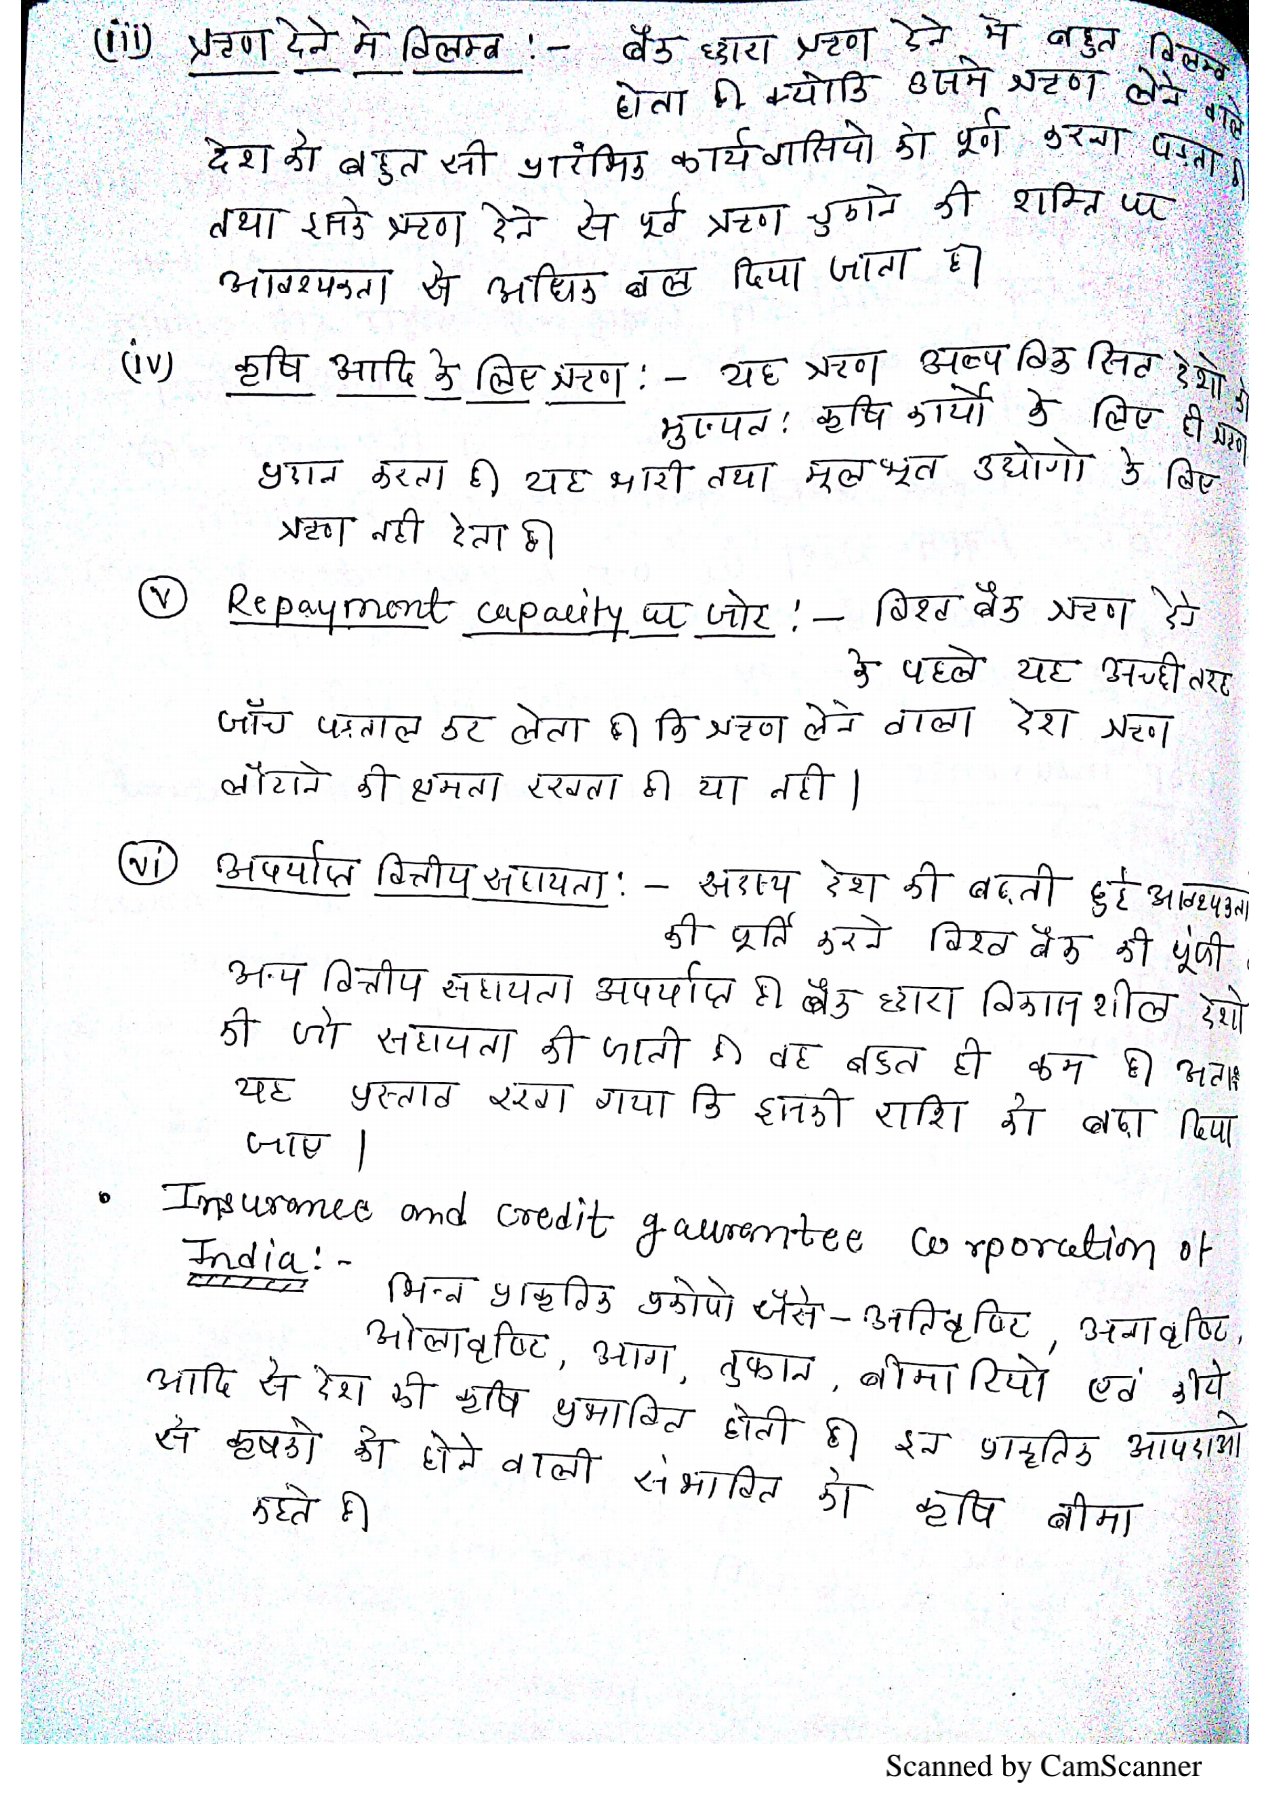 (iii) ऋण देने मे विलम्ब :- बैंक द्वारा ऋण देने मे बहुत विलम्ब
होता है। क्योकि उसमे ऋण लेने वाले
देश को बहुत सी प्रारंभिक कार्यवासियो को पूर्ण करना पडता है।
तथा इसके ऋण देने से पूर्व ऋण चुकाने की शक्ति पर
आवश्यकता से अधिक बल दिया जाता है।
(iv) कृषि आदि के लिए ऋण :- यह ऋण अल्प विकसित देशो को
मुख्यत: कृषि कार्यो के लिए ही ऋण
प्रदान करता है। यह भारी तथा मूलभूत उद्योगो के लिए
ऋण नही देता है।
(v) Repayment capacity पर जोर :- विश्व बैंक ऋण देने
के पहले यह अच्छी तरह
जाँच पडताल कर लेता है। कि ऋण लेने वाला देश ऋण
लौटाने की क्षमता रखता है। या नही।
(vi) अपर्याप्त वित्तीय सहायता :- सदस्य देश की बढ़ती हुई आवश्यकता
की पूर्ति करने विश्व बैंक की पूंजी
अन्य वित्तीय सहायता अपर्याप्त है। बैंक द्वारा विकासशील देशो
को जो सहायता की जाती है। वह बहुत ही कम है। अतः
यह प्रस्ताव रखा गया कि इसकी राशि को बढ़ा दिया
जाए।
• Insurance and credit gaurantee Corporation of
India :-
भिन्न प्राकृतिक प्रकोपो जैसे - अतिवृष्टि, अनावृष्टि,
ओलावृष्टि, आग, तुफान, बीमारियो एवं कीडे
आदि से देश की कृषि प्रभावित होती है। इन प्राकृतिक आपदाओ
से कृषको को होने वाली संभावित को कृषि बीमा
कहते है।
Scanned by CamScanner